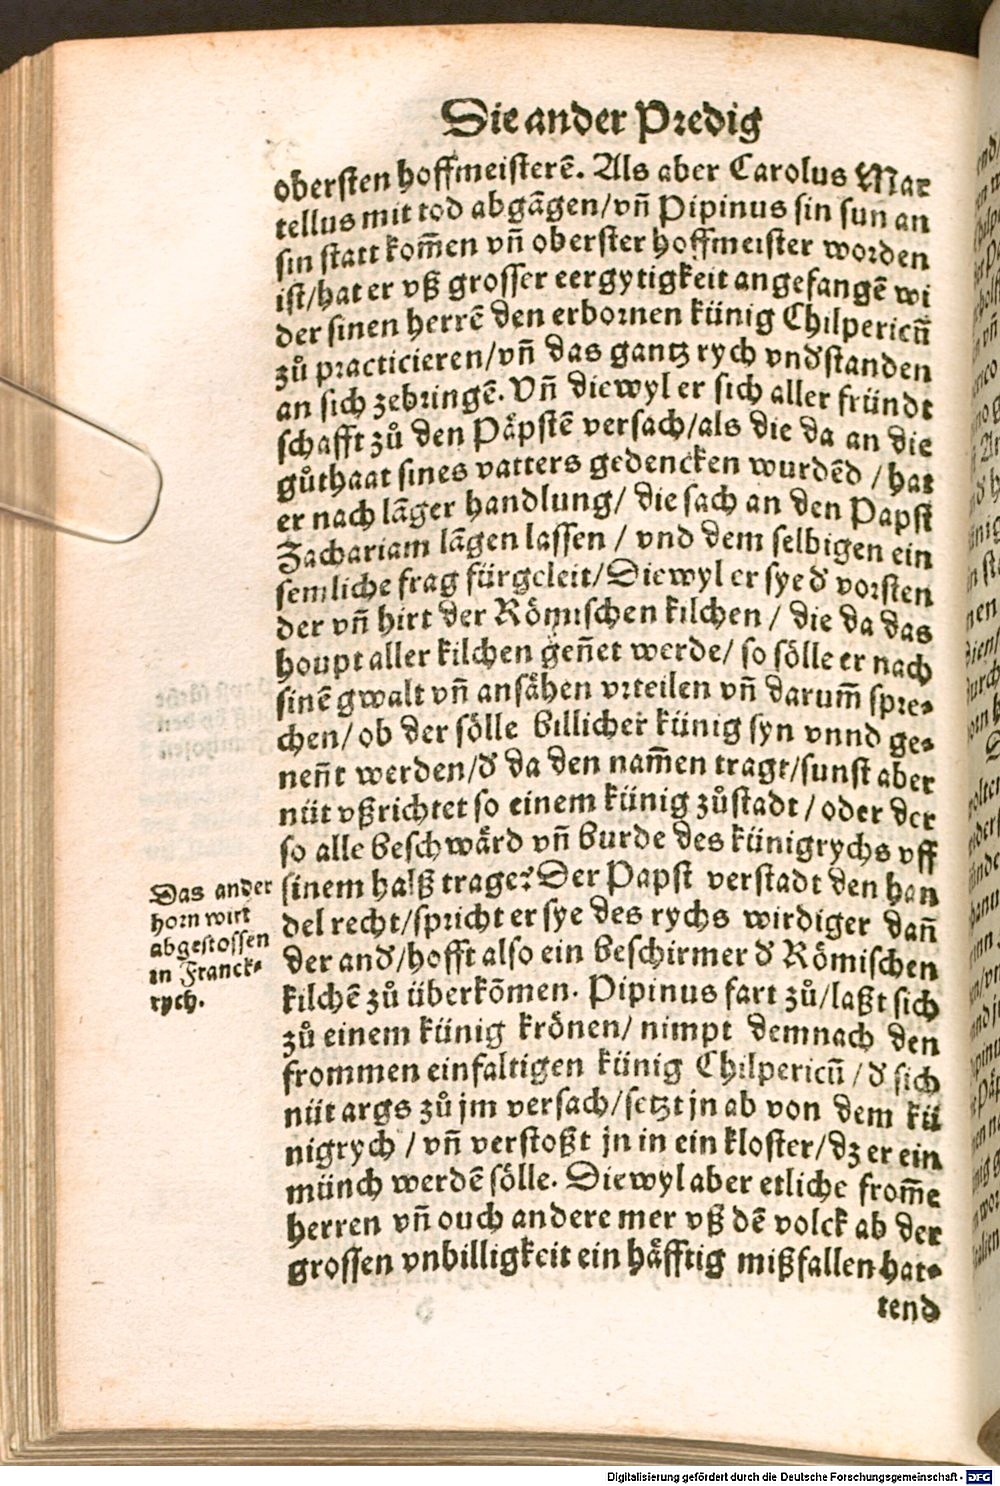 Die ander Predig
obersten hoffmeisterẽ. Als aber Carolus Mar
tellus mit tod abgãgen/vñ Pipinus sin sun an
sin statt kom̃en vñ oberster hoffmeister worden
ist/hat er vß grosser eergytigkeit angefangẽ wi
der sinen herrẽ den erbornen künig Chilpericũ
zů practicieren/vñ das gantz rych vnd̕standen
an sich zebringẽ. Vñ diewyl er sich aller fründt
schafft zů den Päpstẽ versach/als die da an die
gůthaat sines vatters gedencken wurdẽd /hat
er nach lãger handlung/ die sach an den Papst
Zachariam lãgen lassen / vnd dem selbigen ein
semliche frag fürgeleit/Diewyl er sye d̕ vorsten
der vñ hirt der Römischen kilchen / die da das
houpt aller kilchen geñet werde/ so sölle er nach
sinẽ gwalt vñ ansähen vrteilen vñ darum̃ spre⸗
chen/ ob der sölle billicher künig syn vnnd ge⸗
neñt werden/d̕ da den nam̃en tragt/sunst aber
nüt vßrichtet so einem künig zůstadt / oder der
so alle beschwärd vñ burde des künigrychs vff
sinem halß trage? Der Papst verstadt den han
del recht/spricht er sye des rychs wirdiger dañ
der and̕/hofft also ein beschirmer d̕ Römischen
kilchẽ zů überkõmen. Pipinus fart zů/laßt sich
zů einem künig krönen/ nimpt demnach den
frommen einfaltigen künig Chilpericũ / d̕ sich
nüt args zů jm versach/setzt jn ab von dem kü
nigrych / vñ verstoßt jn in ein kloster/dz er ein
münch werdẽ sölle. Diewyl aber etliche from̃e
herren vñ ouch andere mer vß dẽ volck ab der
grossen vnbilligkeit ein häfftig mißfallen hat⸗
tend
Das ander
horn wirt
abgestossen
in Franck⸗
rych.
Digitalisierung gefördert durch die Deutsche Forschungsgemeinschaft - DFG